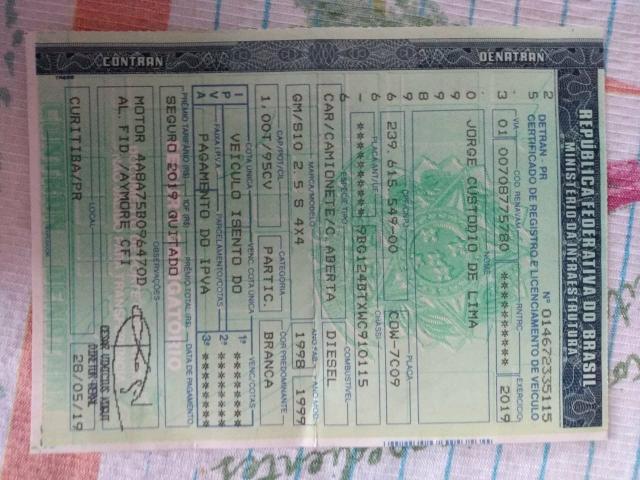 REPÚBLICA FEDERATIVA DO BRASIL
MINISTÉRIO DA INFRAESTRUTURA
CONTRAN
DENATRAN
DETRAN - PR
Nº 014679335115
CERTIFICADO DE REGISTRO E LICENCIAMENTO DE VEÍCULO
VIA
COD. RENAVAM
RNTRC
EXERCÍCIO
01
***********
2019
NOME
JORGE CUSTODIO DE LIMA
PLACA
239.615.549-00
CDW-7C09
PLACA ANT/UF
CHASSI
9BG124BTXWC710115
ESPÉCIE TIPO
COMBUSTÍVEL
CAR/CAMIONETE/C ABERTA
DIESEL
MARCA/MODELO
ANO FAB.
ANO MOD.
GM/S10 2.5 S 4X4
1998
1999
CAP/POT/CIL
CATEGORIA
COR PREDOMINANTE
1.00T/95CV
PARTIC
BRANCA
COTA ÚNICA
VENC. COTA ÚNICA
VENC/COTAS
IPVA
VEÍCULO ISENTO DO
PAGAMENTO DO IPVA
FAIXA I.P.V.A.
PARCELAMENTO/COTAS
1º
2º
3º
PRÊMIO TARIFÁRIO (R$)
IOF (R$)
PRÊMIO TOTAL (R$)
DATA DE PAGAMENTO
SEGURO 2019 QUITADO
OBSERVAÇÕES
MOTOR
AL. FID./AYMORE CFI
LOCAL
CURITIBA/PR
DIRETOR GERAL
28/05/19